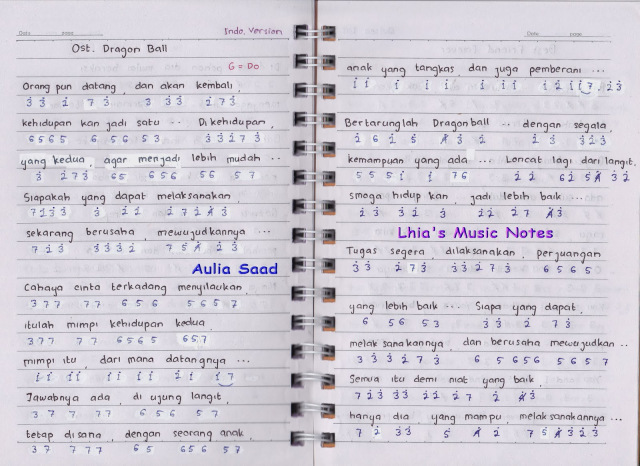 Date page
Indo. Version
Ost. Dragon Ball
G = Do
Orang pun datang, dan akan kembali,
3 3 2 7 3 3 3 3 2 7 3
kehidupan kan jadi satu ... Di kehidupan,
6 5 6 5 6 5 6 5 3 3 3 2 7 3
yang kedua, agar menjadi lebih mudah ...
3 2 7 3 6 5 6 5 6 5 6 5 7
Siapakah yang dapat melaksanakan,
sekarang berusaha, mewujudkannya ...
Aulia Saad
Cahaya cinta terkadang menyilaukan,
3 7 7 7 7 6 5 6 5 6 5 7
itulah mimpi kehidupan kedua,
3 7 7 7 7 6 5 6 5 6 5 7
mimpi itu, dari mana datangnya ...
1 1 1 1 1 1 1 1 2 1 1 7
Jawabnya ada, di ujung langit,
3 7 7 7 7 6 5 6 5 7
tetap disana, dengan seorang anak,
3 7 7 7 7 6 5 6 5 6 5 7
Date page
anak yang tangkas, dan juga pemberani ...
Bertarunglah Dragonball ... dengan segala,
kemampuan yang ada ... Loncat lagi dari langit,
smoga hidup kan, jadi lebih baik ...
Lhia's Music Notes
Tugas segera, dilaksanakan, perjuangan
3 3 2 7 3 3 3 2 7 3 6 5 6 5
yang lebih baik ... Siapa yang dapat,
6 5 6 5 3 3 3 2 7 3
melaksanakannya, dan berusaha mewujudkan ..
3 3 3 2 7 3 6 5 6 5 6 5 6 5 7
Semua itu demi niat yang baik,
hanya dia, yang mampu, melaksanakannya ...